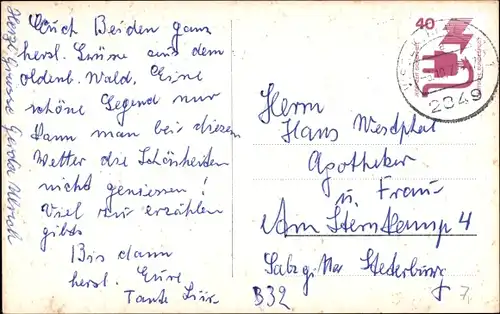 Euch Beiden ganz
herzl. Grüsse aus dem
oldenb. Wald. Eine
schöne Gegend nur
kann man bei diesem
Wetter die Schönheiten
nicht geniessen!
Viel mehr erzählen
gibts
Bis dann
herzl. Eure
Tante
Herzl. Grüsse Gerda Ullrich
40
2949
Herrn
Hans Westphal
Apotheker
u. Frau
Am Sternkamp 4
Salzg. Stederburg
B32
7